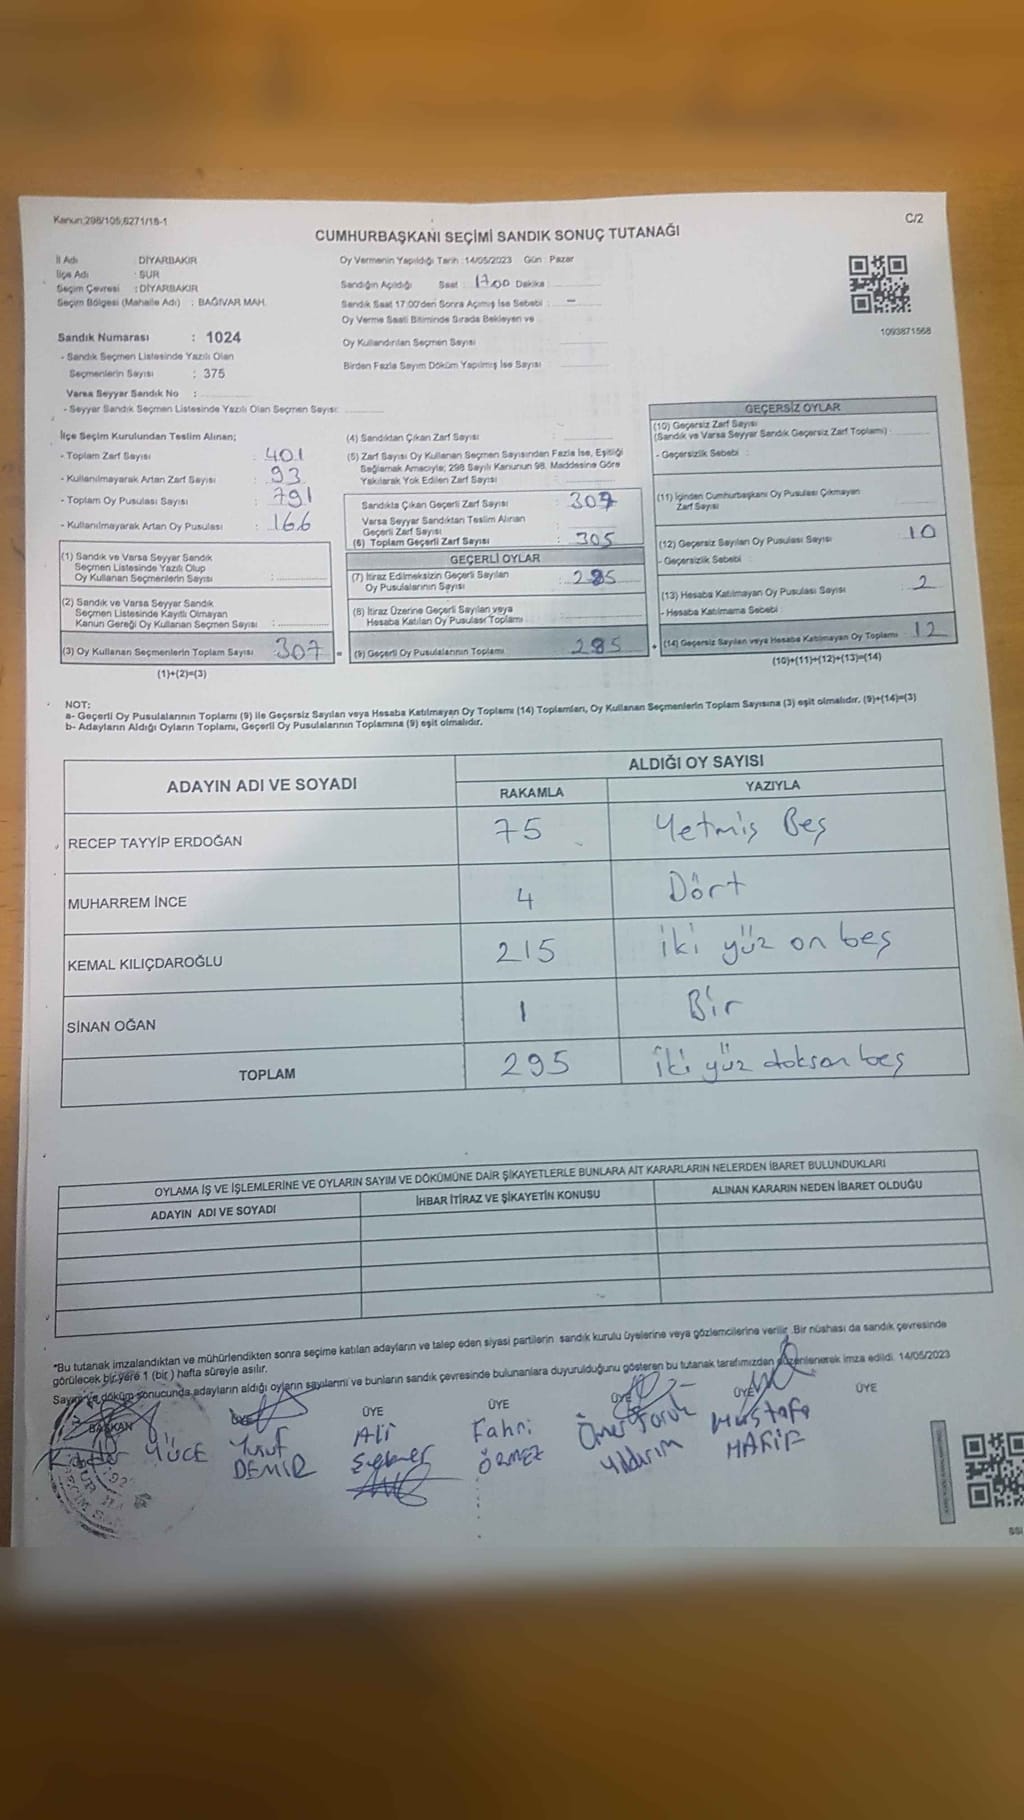 Kanun;298/105,6271/18-1
C/2
CUMHURBAŞKANI SEÇİMİ SANDIK SONUÇ TUTANAĞI
İl Adı : DİYARBAKIR
İlçe Adı : SUR
Seçim Çevresi : DİYARBAKIR
Seçim Bölgesi (Mahalle Adı) : BAĞIVAR MAH.
Oy Vermenin Yapıldığı Tarih :14/05/2023 Gün : Pazar
Sandığın Açıldığı Saat : 17.00 Dakika :
Sandık Saat 17:00'den Sonra Açılmış İse Sebebi : -
Oy Verme Saati Bitiminde Sırada Bekleyen ve
Oy Kullandırılan Seçmen Sayısı
Birden Fazla Sayım Döküm Yapılmış İse Sayısı
1093871568
Sandık Numarası : 1024
- Sandık Seçmen Listesinde Yazılı Olan
Seçmenlerin Sayısı : 375
Varsa Seyyar Sandık No :
- Seyyar Sandık Seçmen Listesinde Yazılı Olan Seçmen Sayısı:
İlçe Seçim Kurulundan Teslim Alınan;
- Toplam Zarf Sayısı : 401
- Kullanılmayarak Artan Zarf Sayısı : 93
- Toplam Oy Pusulası Sayısı : 791
- Kullanılmayarak Artan Oy Pusulası : 166
(1) Sandık ve Varsa Seyyar Sandık
Seçmen Listesinde Yazılı Olup
Oy Kullanan Seçmenlerin Sayısı :
(2) Sandık ve Varsa Seyyar Sandık
Seçmen Listesinde Kayıtlı Olmayan
Kanun Gereği Oy Kullanan Seçmen Sayısı :
(3) Oy Kullanan Seçmenlerin Toplam Sayısı 307 =
(1)+(2)=(3)
(4) Sandıktan Çıkan Zarf Sayısı :
(5) Zarf Sayısı Oy Kullanan Seçmen Sayısından Fazla İse, Eşitliği
Sağlamak Amacıyla; 298 Sayılı Kanunun 98. Maddesine Göre
Yakılarak Yok Edilen Zarf Sayısı
Sandıkta Çıkan Geçerli Zarf Sayısı : 307
Varsa Seyyar Sandıktan Teslim Alınan
Geçerli Zarf Sayısı
(6) Toplam Geçerli Zarf Sayısı : 305
GEÇERLİ OYLAR
(7) İtiraz Edilmeksizin Geçerli Sayılan
Oy Pusulalarının Sayısı : 285
(8) İtiraz Üzerine Geçerli Sayılan veya
Hesaba Katılan Oy Pusulası Toplamı
(9) Geçerli Oy Pusulalarının Toplamı 285 +
GEÇERSİZ OYLAR
(10) Geçersiz Zarf Sayısı
(Sandık ve Varsa Seyyar Sandık Geçersiz Zarf Toplamı) :
- Geçersizlik Sebebi :
(11) İçinden Cumhurbaşkanı Oy Pusulası Çıkmayan
Zarf Sayısı
(12) Geçersiz Sayılan Oy Pusulası Sayısı : 10
- Geçersizlik Sebebi :
(13) Hesaba Katılmayan Oy Pusulası Sayısı : 2
- Hesaba Katılmama Sebebi :
(14) Geçersiz Sayılan veya Hesaba Katılmayan Oy Toplamı 12
(10)+(11)+(12)+(13)=(14)
NOT:
a- Geçerli Oy Pusulalarının Toplamı (9) ile Geçersiz Sayılan veya Hesaba Katılmayan Oy Toplamı (14) Toplamları, Oy Kullanan Seçmenlerin Toplam Sayısına (3) eşit olmalıdır. (9)+(14)=(3)
b- Adayların Aldığı Oyların Toplamı, Geçerli Oy Pusulalarının Toplamına (9) eşit olmalıdır.
ADAYIN ADI VE SOYADI
ALDIĞI OY SAYISI
RAKAMLA YAZIYLA
RECEP TAYYİP ERDOĞAN 75 Yetmiş Beş
MUHARREM İNCE 4 Dört
KEMAL KILIÇDAROĞLU 215 iki yüz on beş
SİNAN OĞAN 1 Bir
TOPLAM 295 iki yüz doksan beş
OYLAMA İŞ VE İŞLEMLERİNE VE OYLARIN SAYIM VE DÖKÜMÜNE DAİR ŞİKAYETLERLE BUNLARA AİT KARARLARIN NELERDEN İBARET BULUNDUKLARI
ADAYIN ADI VE SOYADI İHBAR İTİRAZ VE ŞİKAYETİN KONUSU ALINAN KARARIN NEDEN İBARET OLDUĞU
*Bu tutanak imzalandıktan ve mühürlendikten sonra seçime katılan adayların ve talep eden siyasi partilerin sandık kurulu üyelerine veya gözlemcilerine verilir. Bir nüshası da sandık çevresinde
görülecek bir yere 1 (bir ) hafta süreyle asılır.
Sayım ve döküm sonucunda adayların aldığı oyların sayılarını ve bunların sandık çevresinde bulunanlara duyurulduğunu gösteren bu tutanak tarafımızdan düzenlenerek imza edildi. 14/05/2023
BAŞKAN ÜYE ÜYE ÜYE ÜYE ÜYE ÜYE
YÜCE
Yusuf
DEMİR
Ali
Fahri
ÖRMEZ
Ömer Faruk
Yıldırım
Mustafa